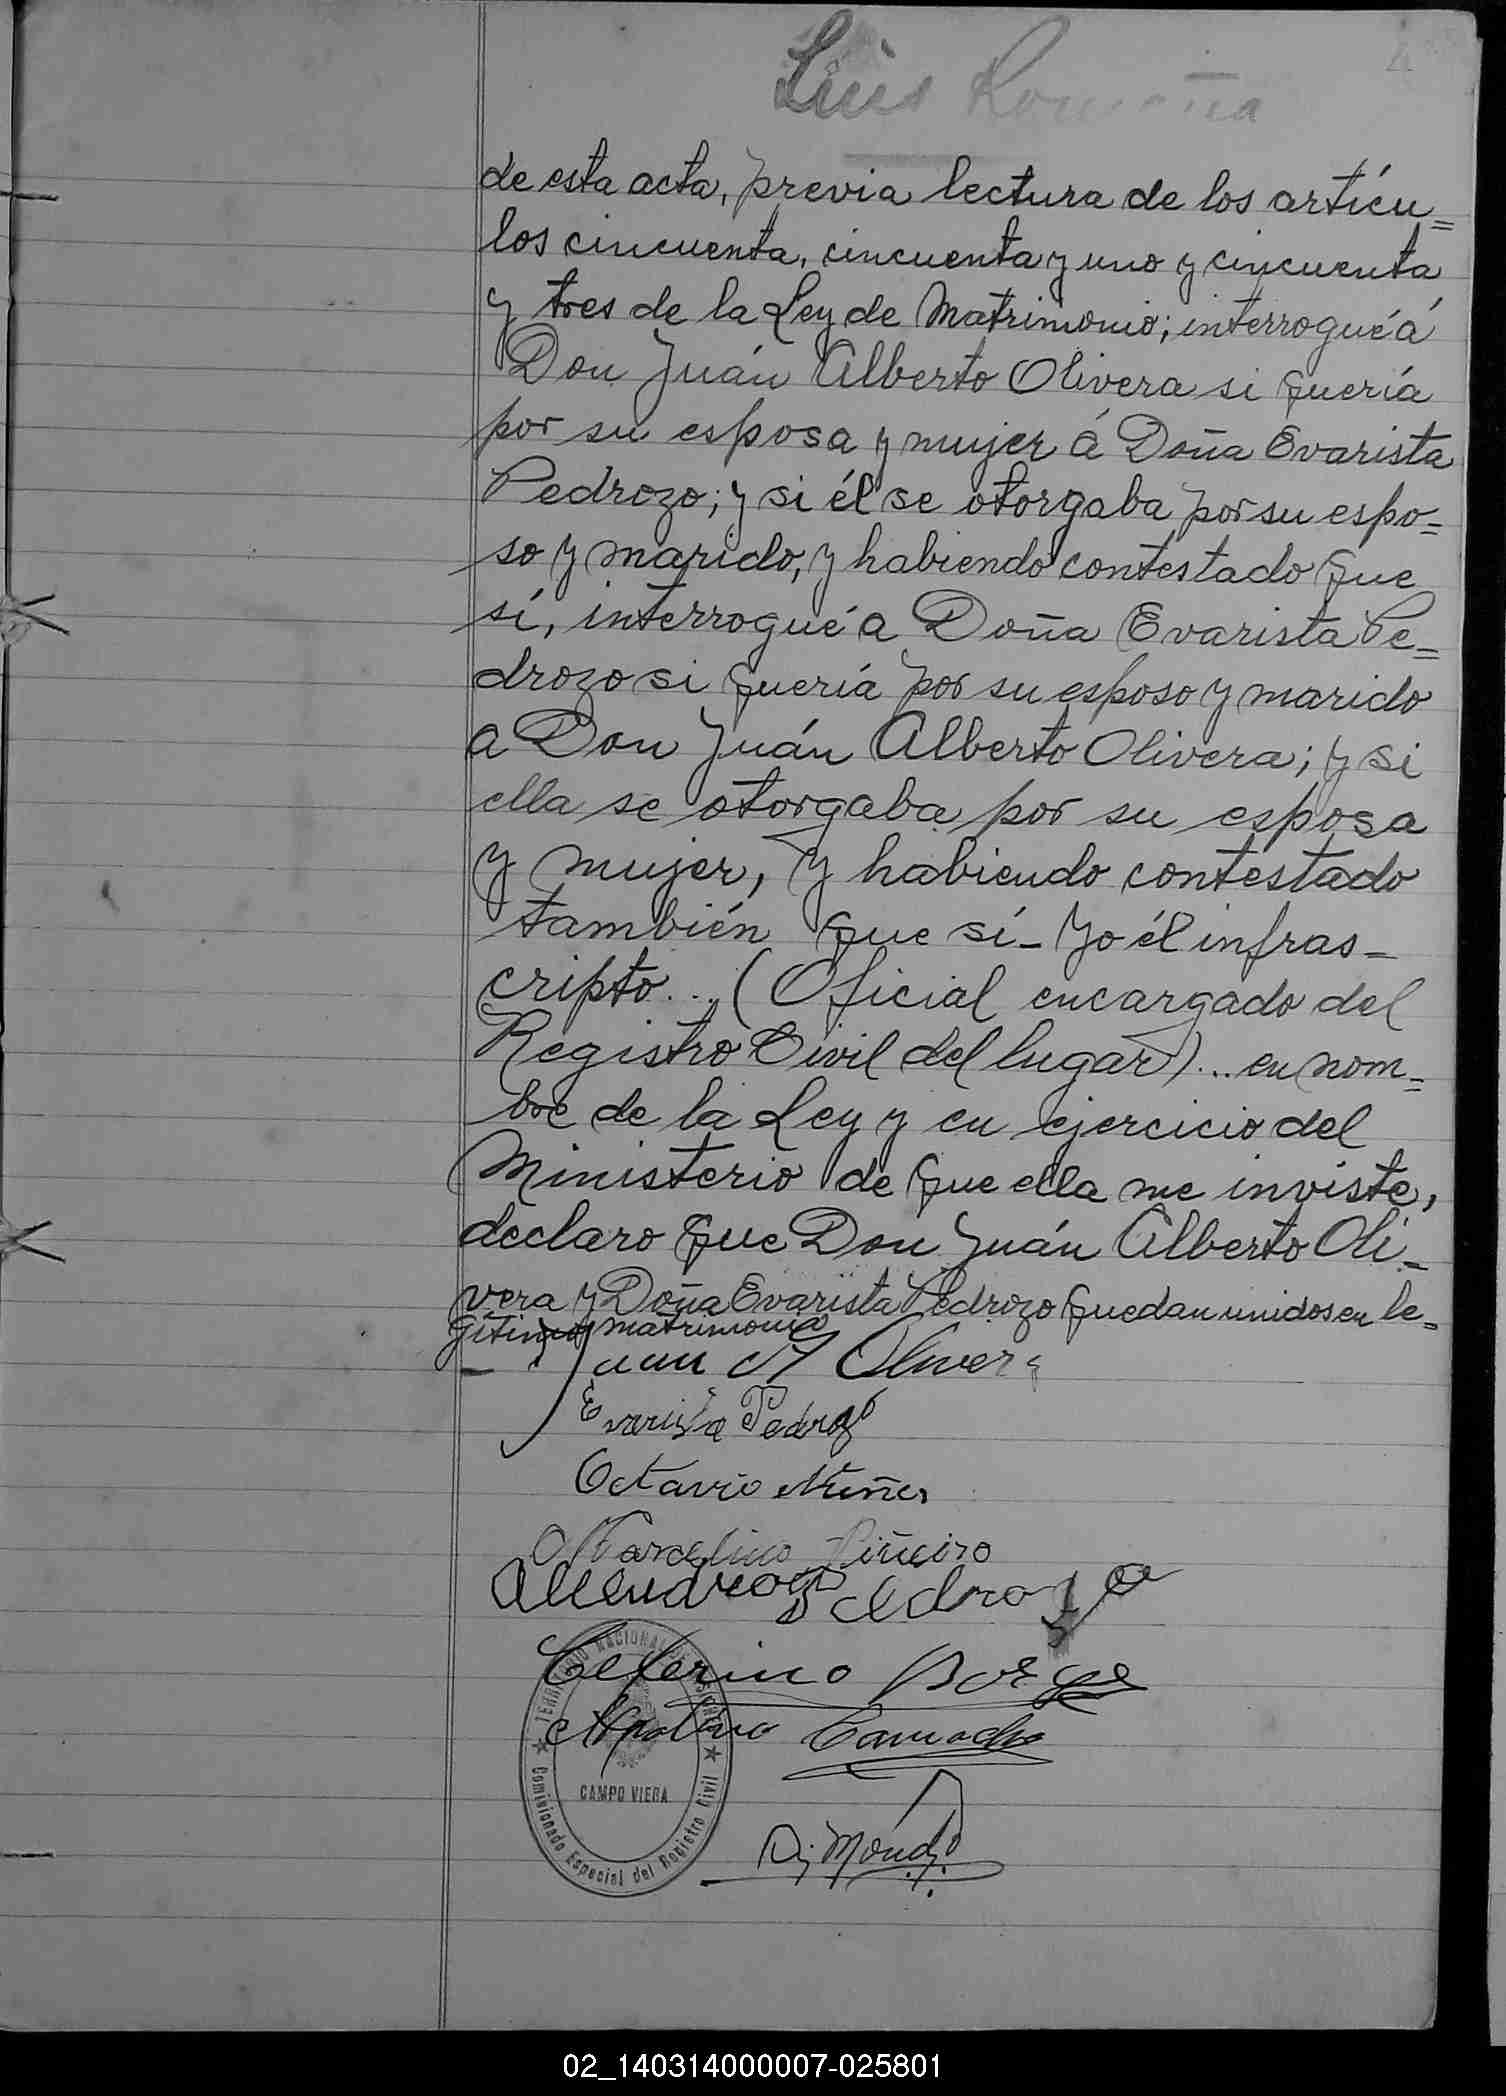 Luis
4
de esta acta, previa lectura de los artícu=
los cincuenta, cincuenta y uno y cincuenta
y tres de la Ley de Matrimonio; interrogué á
Don Juán Alberto Olivera si quería
por su esposa y mujer á Doña Evarista
Pedrozo; y si él se otorgaba por su espo=
so y marido, y habiendo contestado que
sí, interrogué a Doña Evarista Pe=
drozo si quería por su esposo y marido
a Don Juán Alberto Olivera; y si
ella se otorgaba por su esposa
y mujer, y habiendo contestado
también que sí_ Yo él infras_
cripto... (Oficial encargado del
Registro Civil del lugar)... en nom=
bre de la Ley y en ejercicio del
Ministerio de que ella me inviste,
declaro que Don Juán Alberto Oli_
vera y Doña Evarista Pedrozo quedan unidos en le=
gítimo matrimonio
Juan A Olivera
Evarista Pedrozo
Octavio Núñes
Marcelino Piñeiro
Ceferino Borge
Camacho
TERRITORIO NACIONAL DE MISIONES
CAMPO VIERA
Comisionado Especial del Registro Civil
02_140314000007-025801